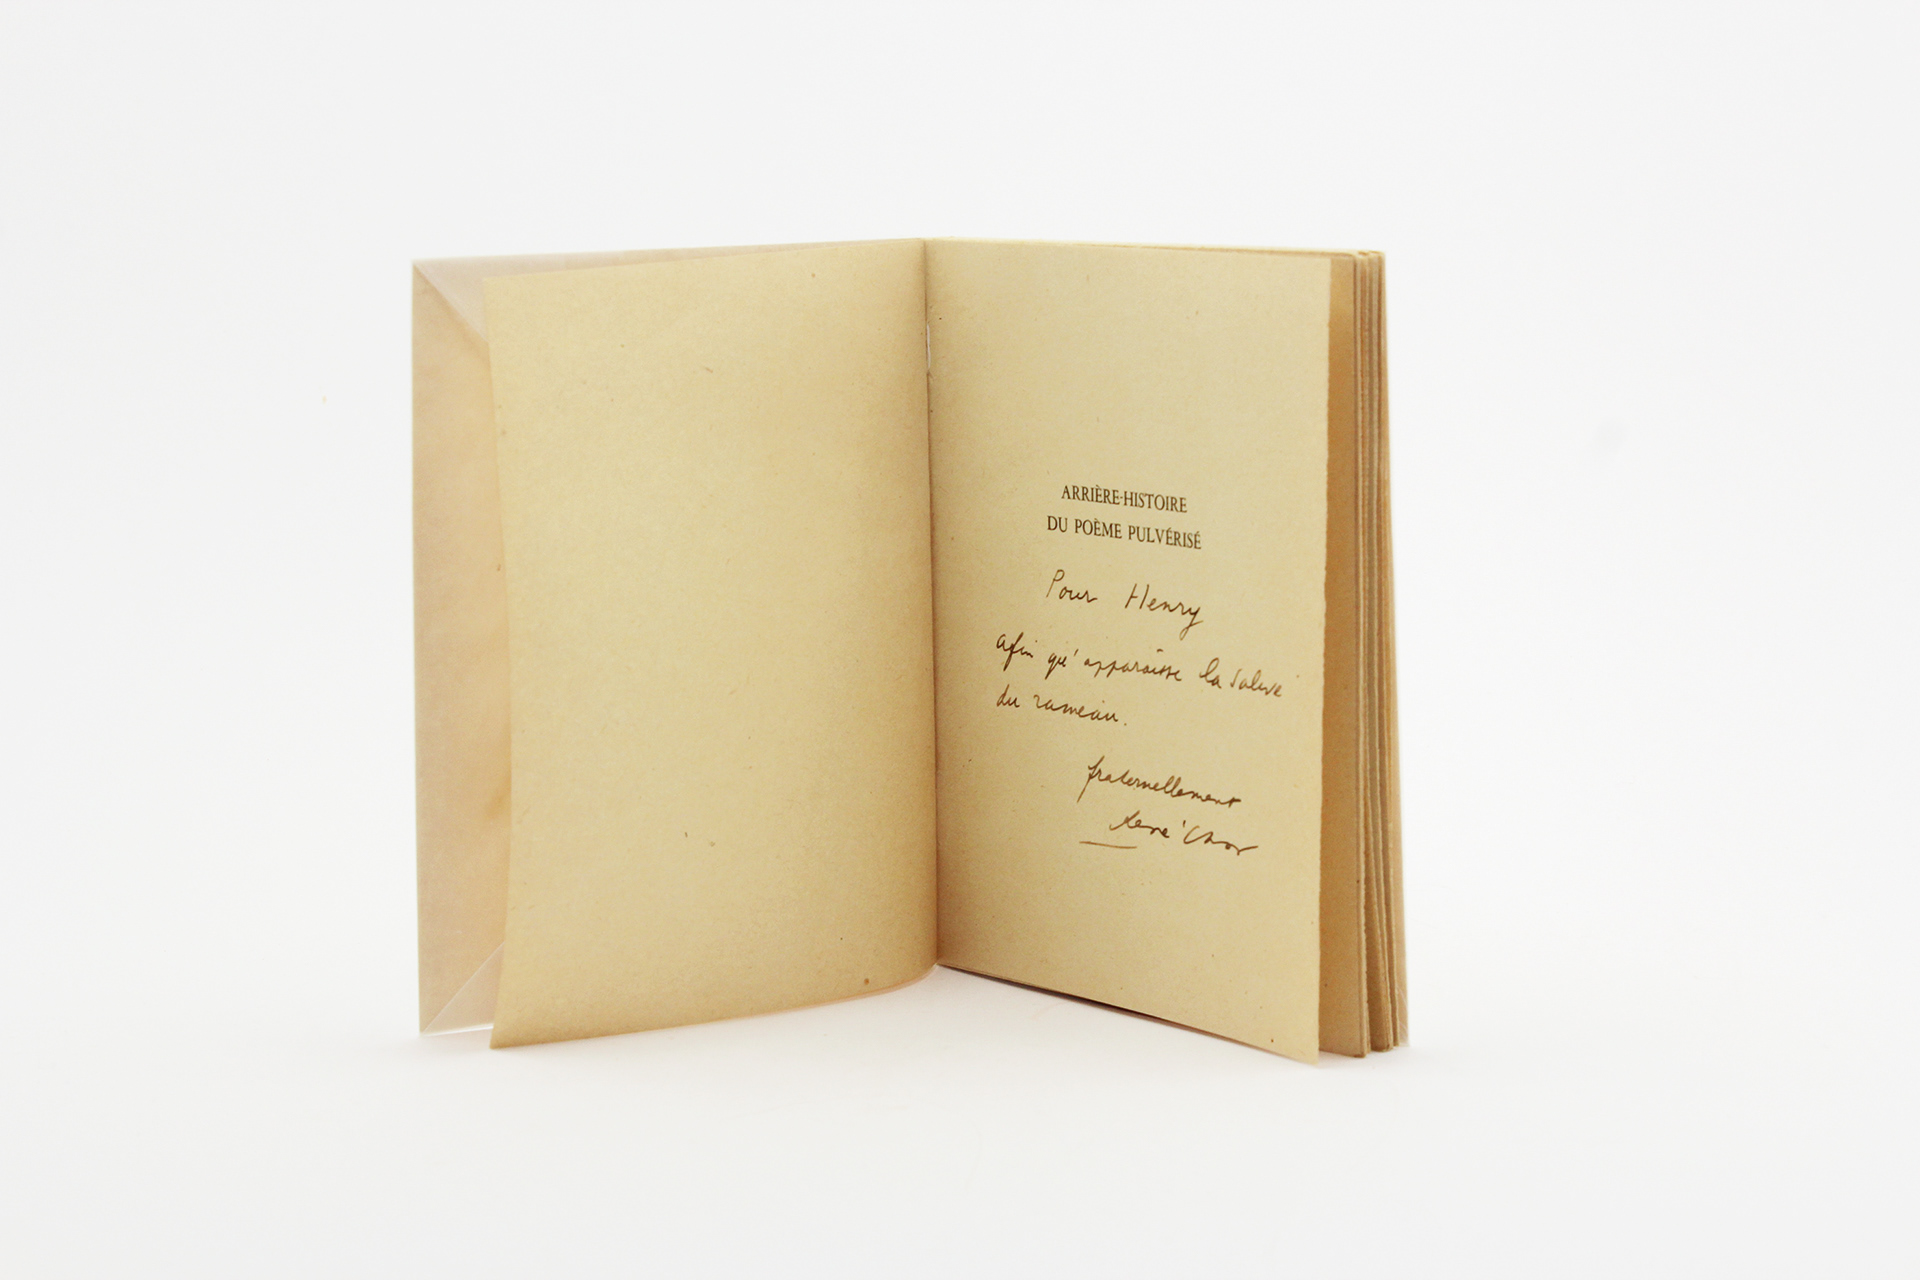 ARRIÈRE-HISTOIRE
DU POÈME PULVÉRISÉ
Pour Henry
afin qu'apparaisse la salive
du rameau.
fraternellement
René Char